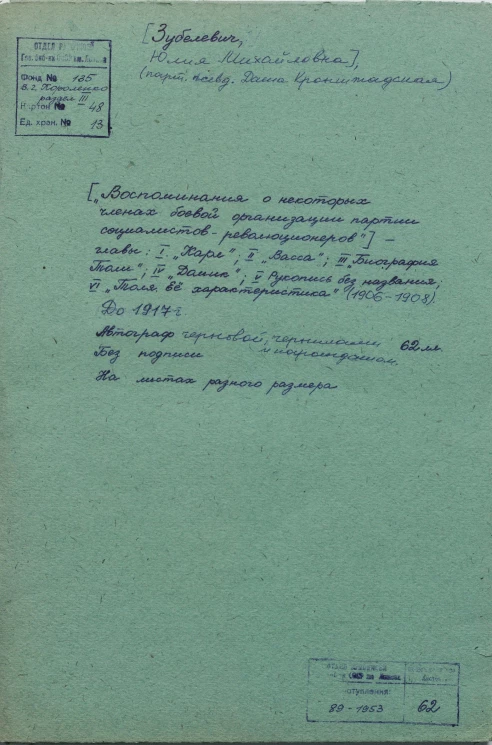 [Зубелевич,
Юлия Михайловна],
(парт. псевд. Даша Кронштадтская)
ОТДЕЛ РУКОПИСЕЙ
Фонд № 135
В.Г. Короленко
раздел III
Картон № 48
Ед. хран. № 13
[„Воспоминания о некоторых
членах боевой организации партии
социалистов-революционеров"] –
главы: I „Карл"; II „Васса"; III „Биография
Толи"; IV „Даник"; V Рукопись без названия;
VI „Толя. Её характеристика" (1906–1908).
До 1917 г
Автограф черновой, чернилами 62 лл.
и карандашом.
Без подписи
На листах разного размера
поступления
89 - 1953
62